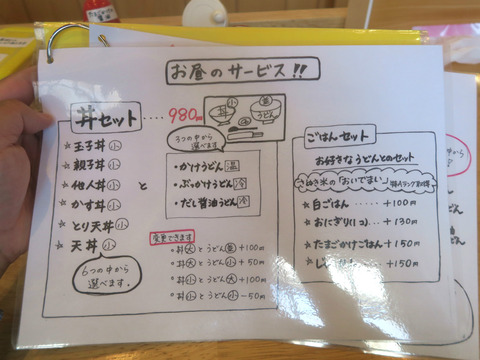 お昼のサービス!!
丼セット ・・・・ 980円
小 並
丼 うどん
☆ 玉子丼 小
☆ 親子丼 小
☆ 他人丼 小
☆ かす丼 小
☆ とり天丼 小
☆ 天丼 小
6つの中から
選べます.
と
3つの中から
選べます
・かけうどん 温
・ぶっかけうどん 冷
・だし醤油うどん 冷
変更できます
・丼大とうどん並 +100円
・丼大とうどん小 +50円
・丼小とうどん大 +100円
・丼小とうどん小 -50円
ごはんセット
お好きなうどんとのセット
「おいでまい」
☆ 白ごはん ・・・ +100円
☆ おにぎり(1コ)・・ +130円
☆ たまごかけごはん +150円
+150円